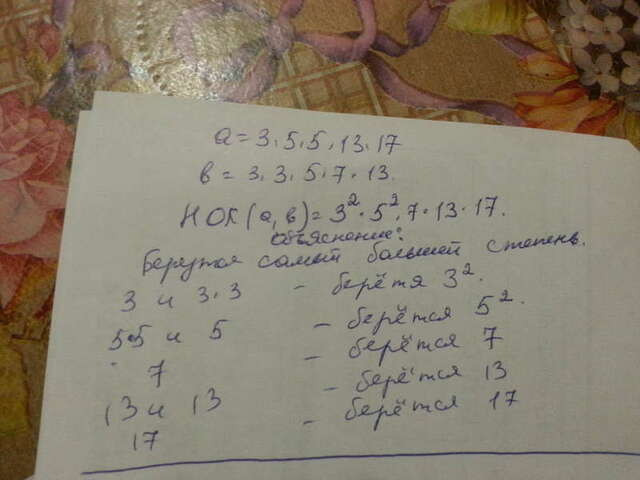 a = 3 · 5 · 5 · 13 · 17
в = 3 · 3 · 5 · 7 · 13.
НОК(а, в) = 3² · 5² · 7 · 13 · 17.
объяснение:
Берутся самый большей степень.
3 и 3 · 3 – берётя 3².
5·5 и 5 – берётся 5².
7 – берётся 7
13 и 13 – берётся 13
17 – берётся 17